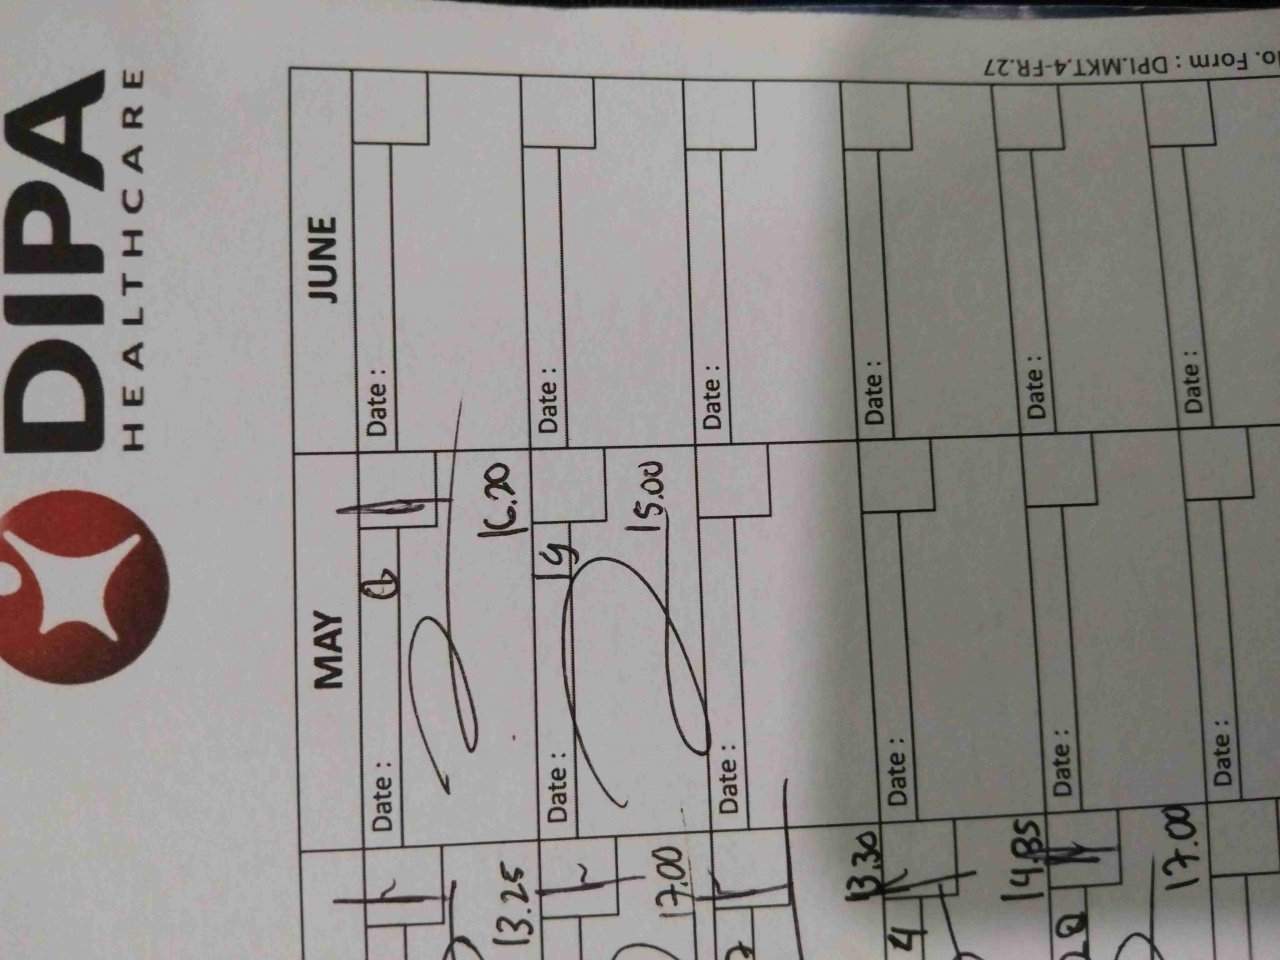 DIPA
HEALTHCARE
No. Form : DPI.MKT.4-FR.27
MAY
JUNE
Date :
Date :
13.25
16.20
Date : 19
Date :
17.00
15.00
Date :
Date :
13.30
4
Date :
Date :
14.35
Date :
Date :
17.00
Date :
Date :